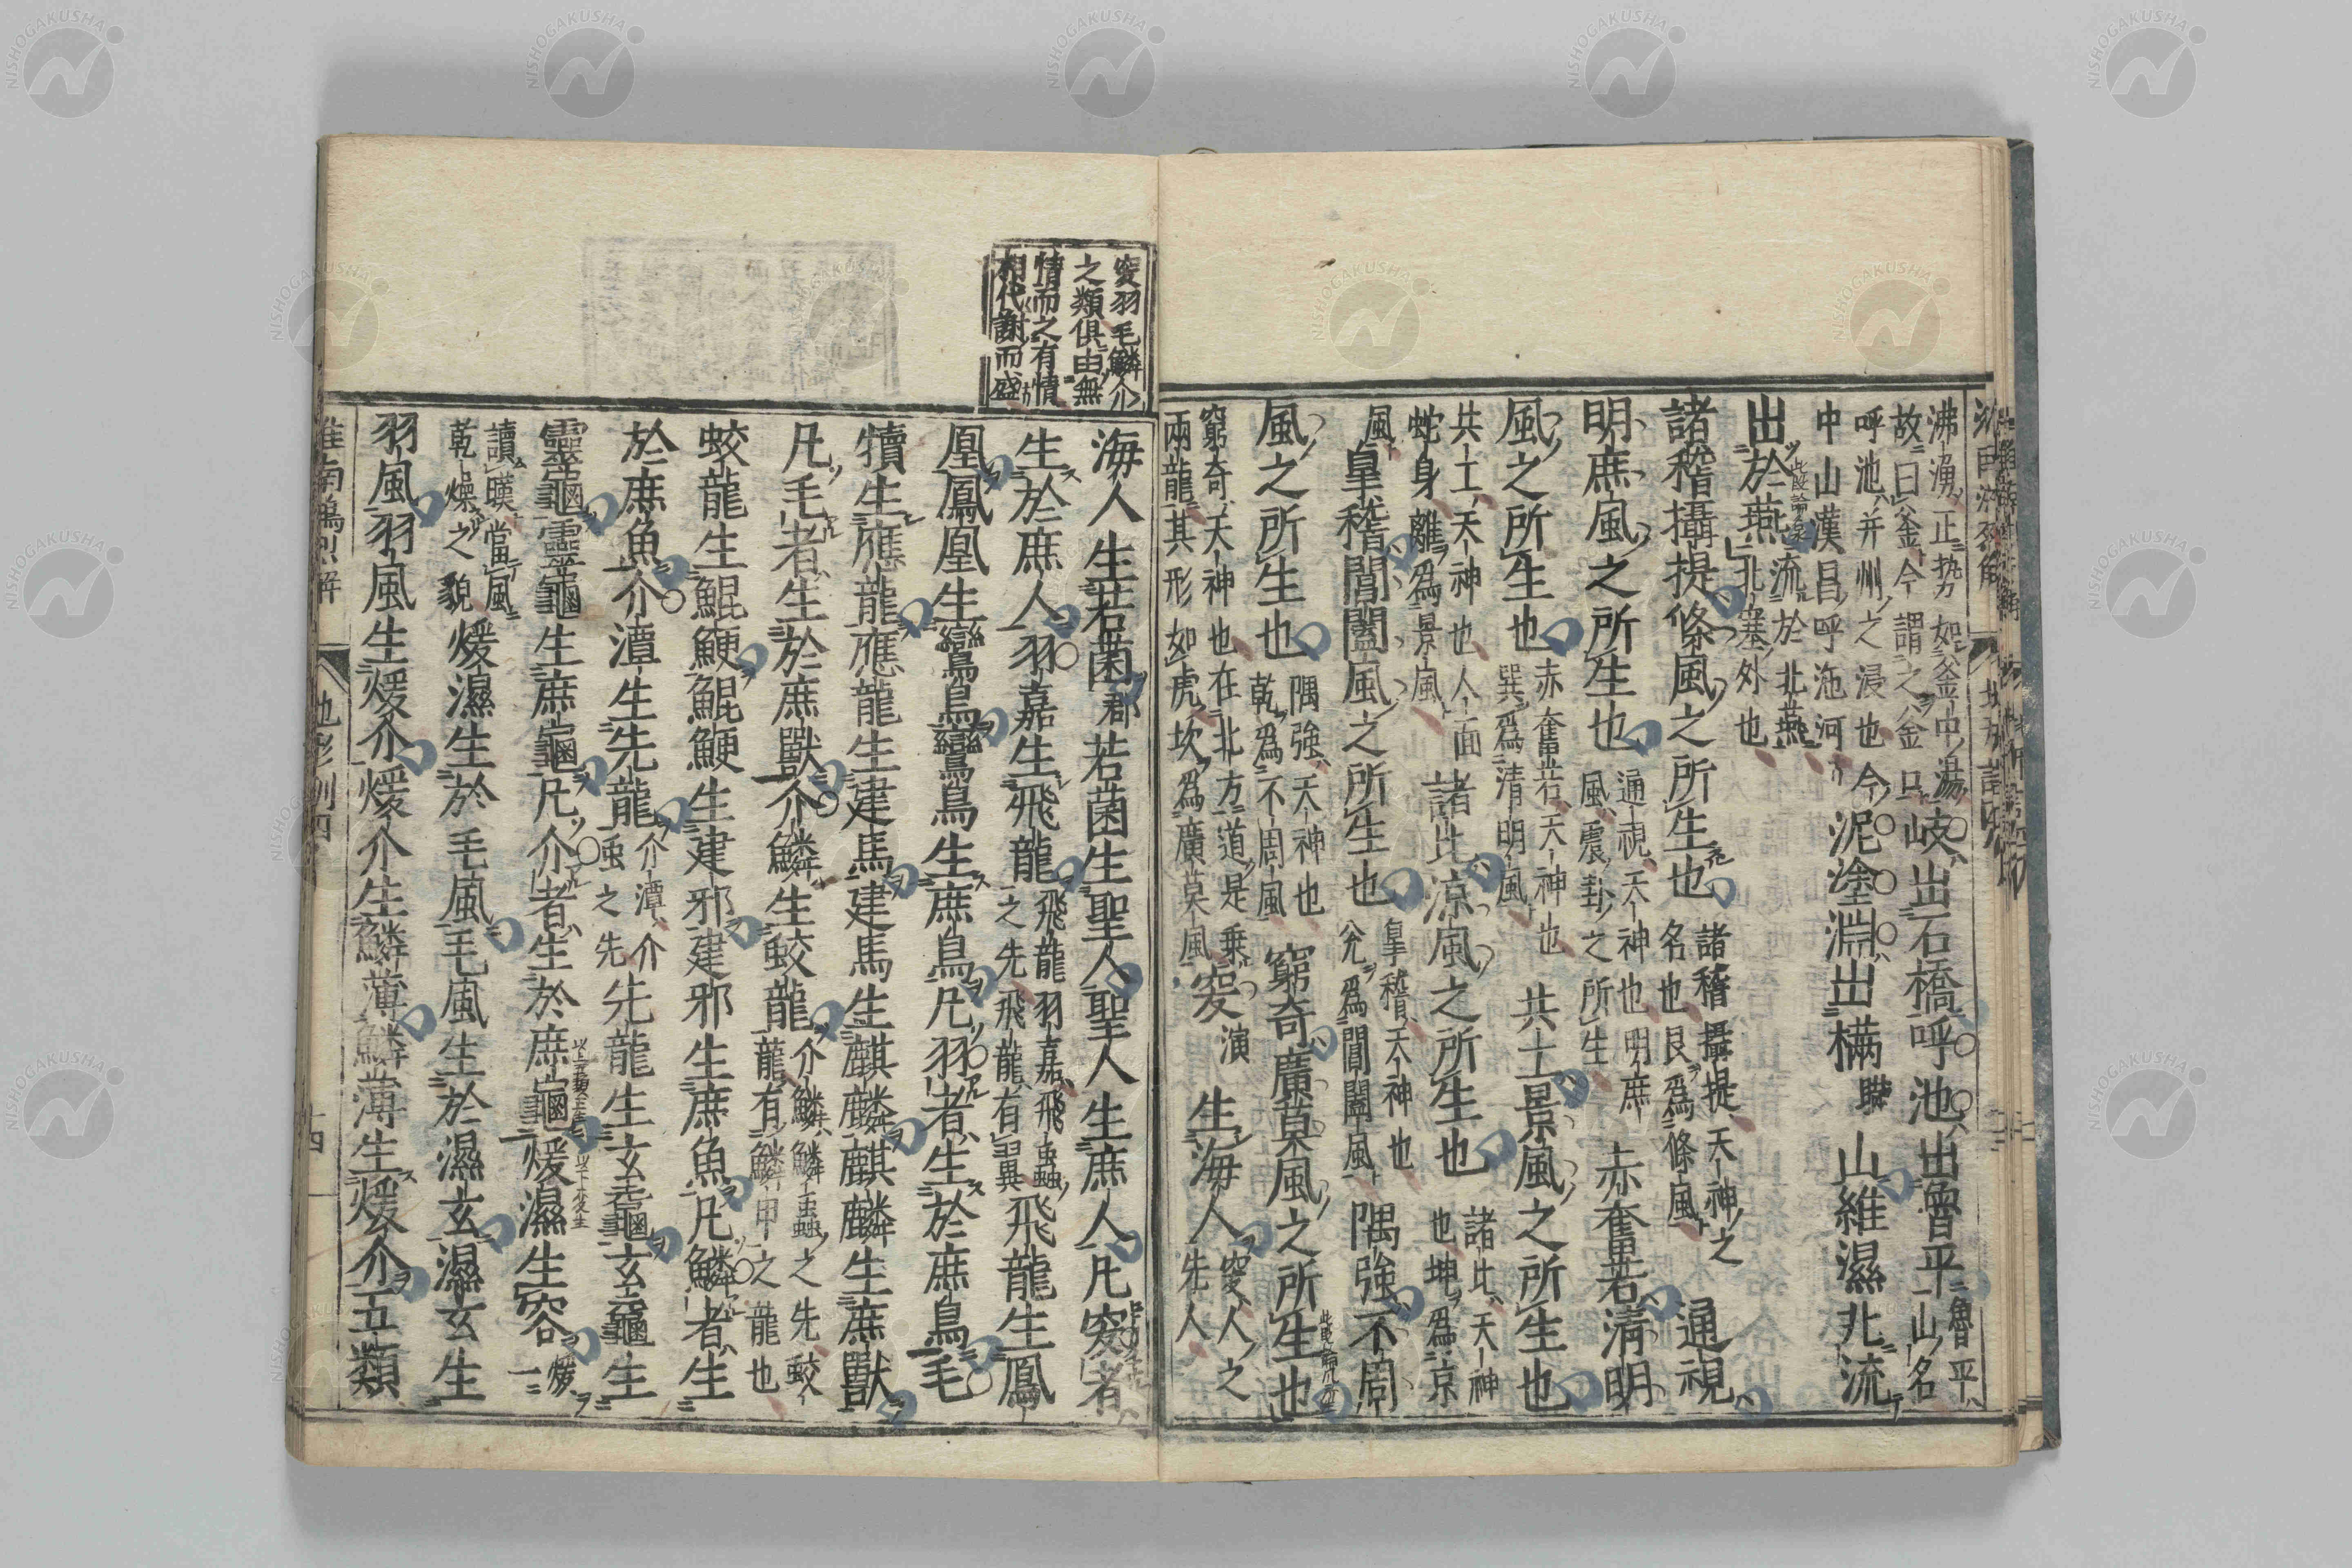 沸湧正勢如釜中湯
故曰釜今謂之釜口岐出石橋呼池出魯平魯平山名
呼池并州之浸也今
中山漢昌呼沲河泥塗淵出樠聯山維濕北流
出於燕流於北燕北塞外也
諸稽攝提條風之所生也諸稽攝提天神之名也艮爲條風通視
明庶風之所生也通視天神也明庶風震卦之所生赤奮若清明
風之所生也赤奮若天神也巽爲清明風共工景風之所生也
共工天神也人面蛇身離爲景風諸比涼風之所生也諸比天神也坤爲涼
風皐稽閶闔風之所生也皐稽天神也兊爲閶闔風隅強不周
風之所生也隅強天神也乾爲不周風窮奇廣莫風之所生也
窮奇天神也在北方道是乗兩龍其形如虎坎爲廣莫風窔演生海人窔人之先人
窔羽毛鱗介
之類俱由無
情而之有情
相代謝而盛
海人生若菌郡若菌生聖人聖人生庶人凡窔者
生於庶人羽嘉生飛龍飛龍羽嘉飛蟲之先飛龍有翼飛龍生鳳
凰鳳凰生鸞鳥鸞鳥生庶鳥凡羽者生於庶鳥毛
犢生應龍應龍生建馬建馬生麒麟麒麟生庶獸
凡毛者生於庶獸介鱗生蛟龍介鱗鱗蟲之先蛟龍有鱗甲之龍也
蛟龍生鯤鯁鯤鯁生建邪建邪生庶魚凡鱗者生
於庶魚介潭生先龍介潭介蟲之先先龍生玄黿玄黿生
靈龜靈龜生庶龜凡介者生於庶龜煖濕生容煖一
讀暵當風乾燥之貌煖濕生於毛風毛風生於濕玄濕玄生
羽風羽風生煖介煖介生鱗薄鱗薄生煖介五類
淮南鴻烈解
地形訓四
十四